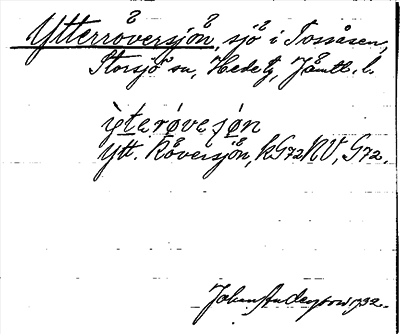 Ytterråversjön, sjö i Tossåsen,
Storsjö sn, Hede tg, Jämtl. l.
ỳterøveʃøn
Ytt. Råversjön, KG72NV, G72.
Johan Anderson 1932.